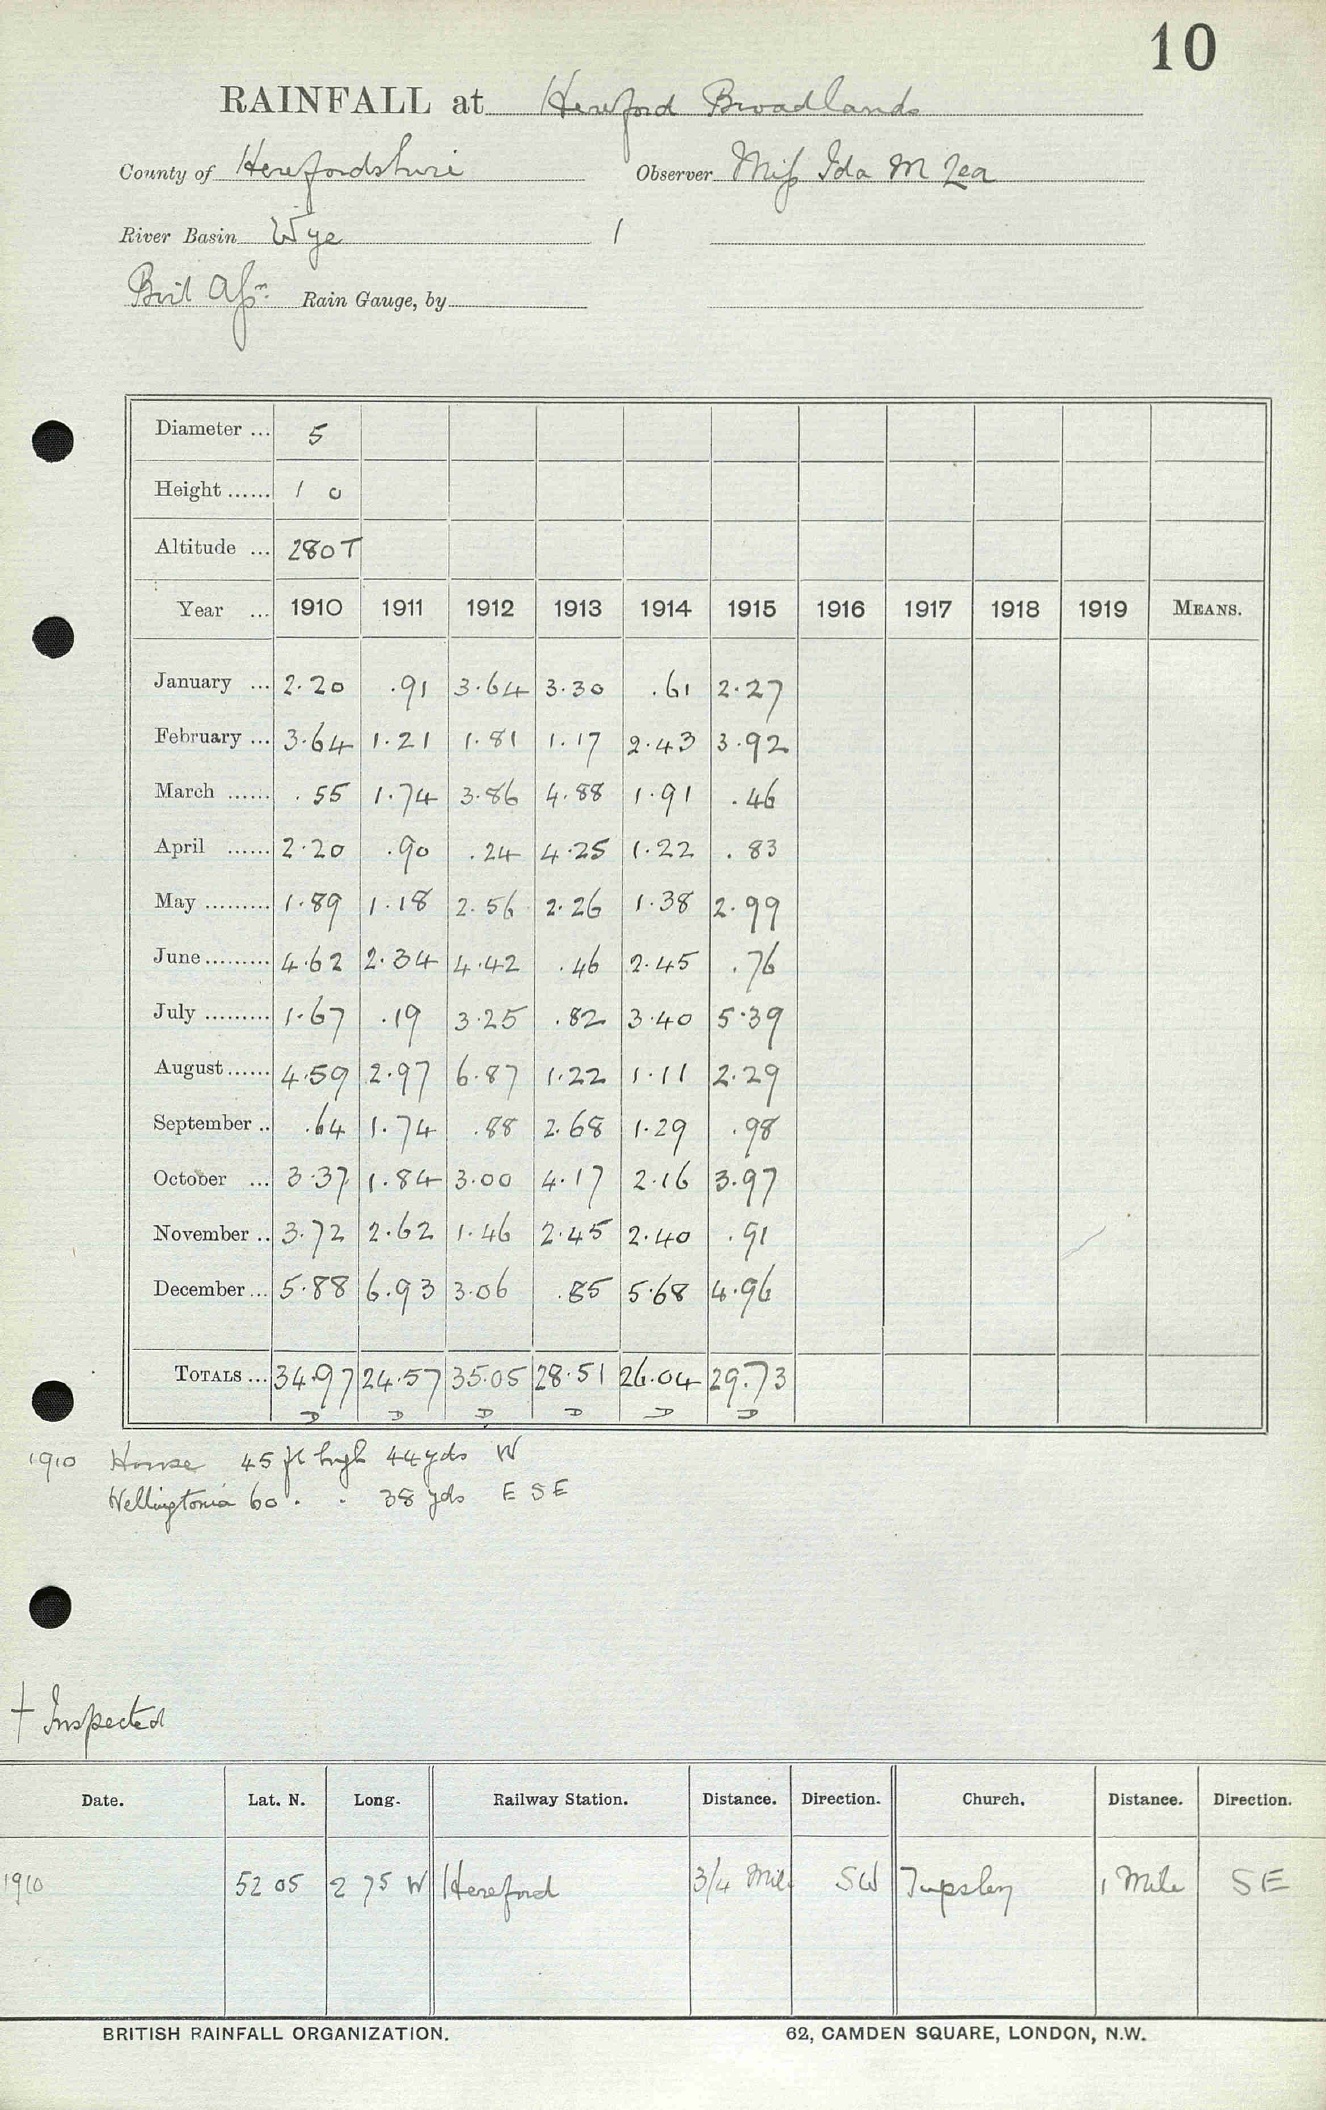 10
RAINFALL at Hereford Broadlands
County of Herefordshire Observer Miss Ida M Lea
River Basin Wye 1
Brit Assn. Rain Gauge, by
Diameter ... 5
Height ...... 1 0
Altitude ... 280 T
Year ... 1910 1911 1912 1913 1914 1915 1916 1917 1918 1919 MEANS.
January ... 2.20 .91 3.64 3.30 .61 2.27
February ... 3.64 1.21 1.81 1.17 2.43 3.92
March ...... .55 1.74 3.86 4.88 1.91 .46
April ...... 2.20 .90 .24 4.25 1.22 .83
May ......... 1.89 1.18 2.56 2.26 1.38 2.99
June ......... 4.62 2.34 4.42 .46 2.45 .76
July ......... 1.67 .19 3.25 .82 3.40 5.39
August ...... 4.59 2.97 6.87 1.22 1.11 2.29
September .. .64 1.74 .88 2.68 1.29 .98
October ... 3.37 1.84 3.00 4.17 2.16 3.97
November .. 3.72 2.62 1.46 2.45 2.40 .91
December ... 5.88 6.93 3.06 .85 5.68 4.96
TOTALS ... 34.97 24.57 35.05 28.51 26.04 29.73
D D D D D D
1910 House 45 ft high 44 yds W
Wellingtonia 60 . . 38 yds E S E
† Inspected
Date. Lat. N. Long. Railway Station. Distance. Direction. Church. Distance. Direction.
1910 52 05 2 75 W Hereford 3/4 Mile SW Tupsley 1 Mile SE
BRITISH RAINFALL ORGANIZATION. 62, CAMDEN SQUARE, LONDON, N.W.